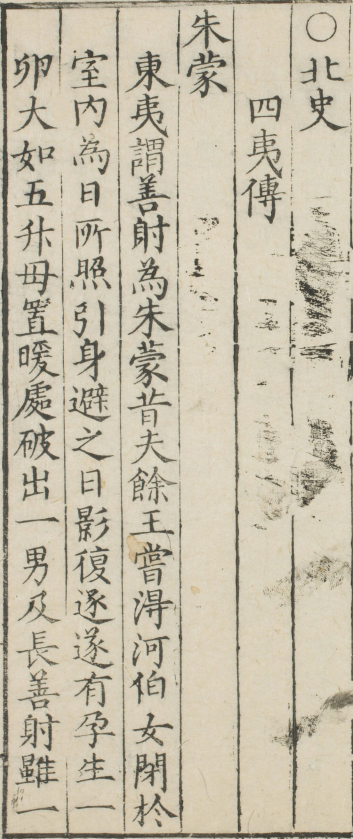 ○北史
四夷傳
朱蒙
東夷謂善射為朱蒙昔夫餘王嘗得河伯女閉於
室内為日所照引身避之日影復逐遂有孕生一
卵大如五升毋置暖處破出一男及長善射雖一